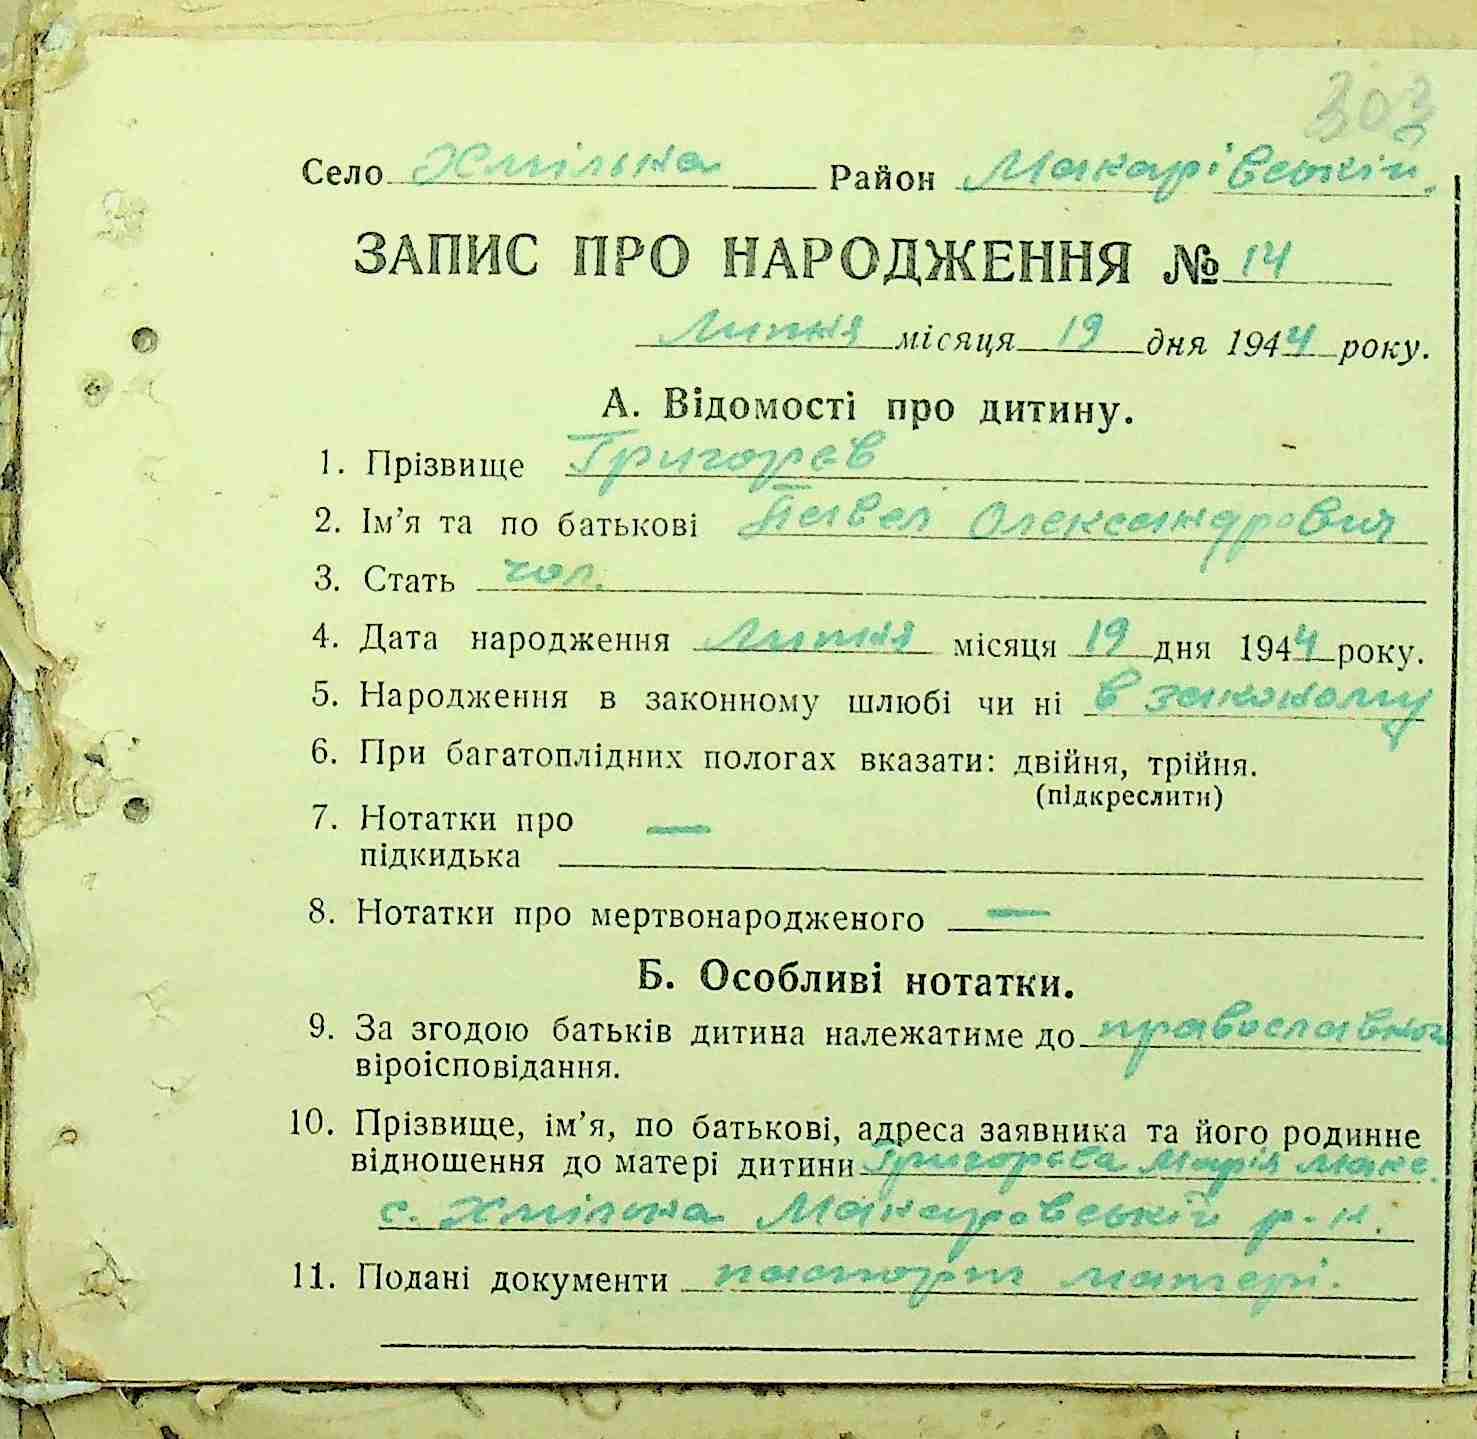 303
Село Хмільна Район Макарівський.
ЗАПИС ПРО НАРОДЖЕННЯ № 14
Липня місяця 19 дня 1944 року.
А. Відомості про дитину.
1. Прізвище Григорєв
2. Ім’я та по батькові Павел Олександрович
3. Стать чол.
4. Дата народження Липня місяця 19 дня 1944 року.
5. Народження в законному шлюбі чи ні в законому
6. При багатоплідних пологах вказати: двійня, трійня.
(підкреслити)
7. Нотатки про —
підкидька
8. Нотатки про мертвонародженого —
Б. Особливі нотатки.
9. За згодою батьків дитина належатиме до православного
віроісповідання.
10. Прізвище, ім’я, по батькові, адреса заявника та його родинне
відношення до матері дитини Григорєва Марія Макс.
с. Хмільна Макаровський р-н.
11. Подані документи паспорт матері.